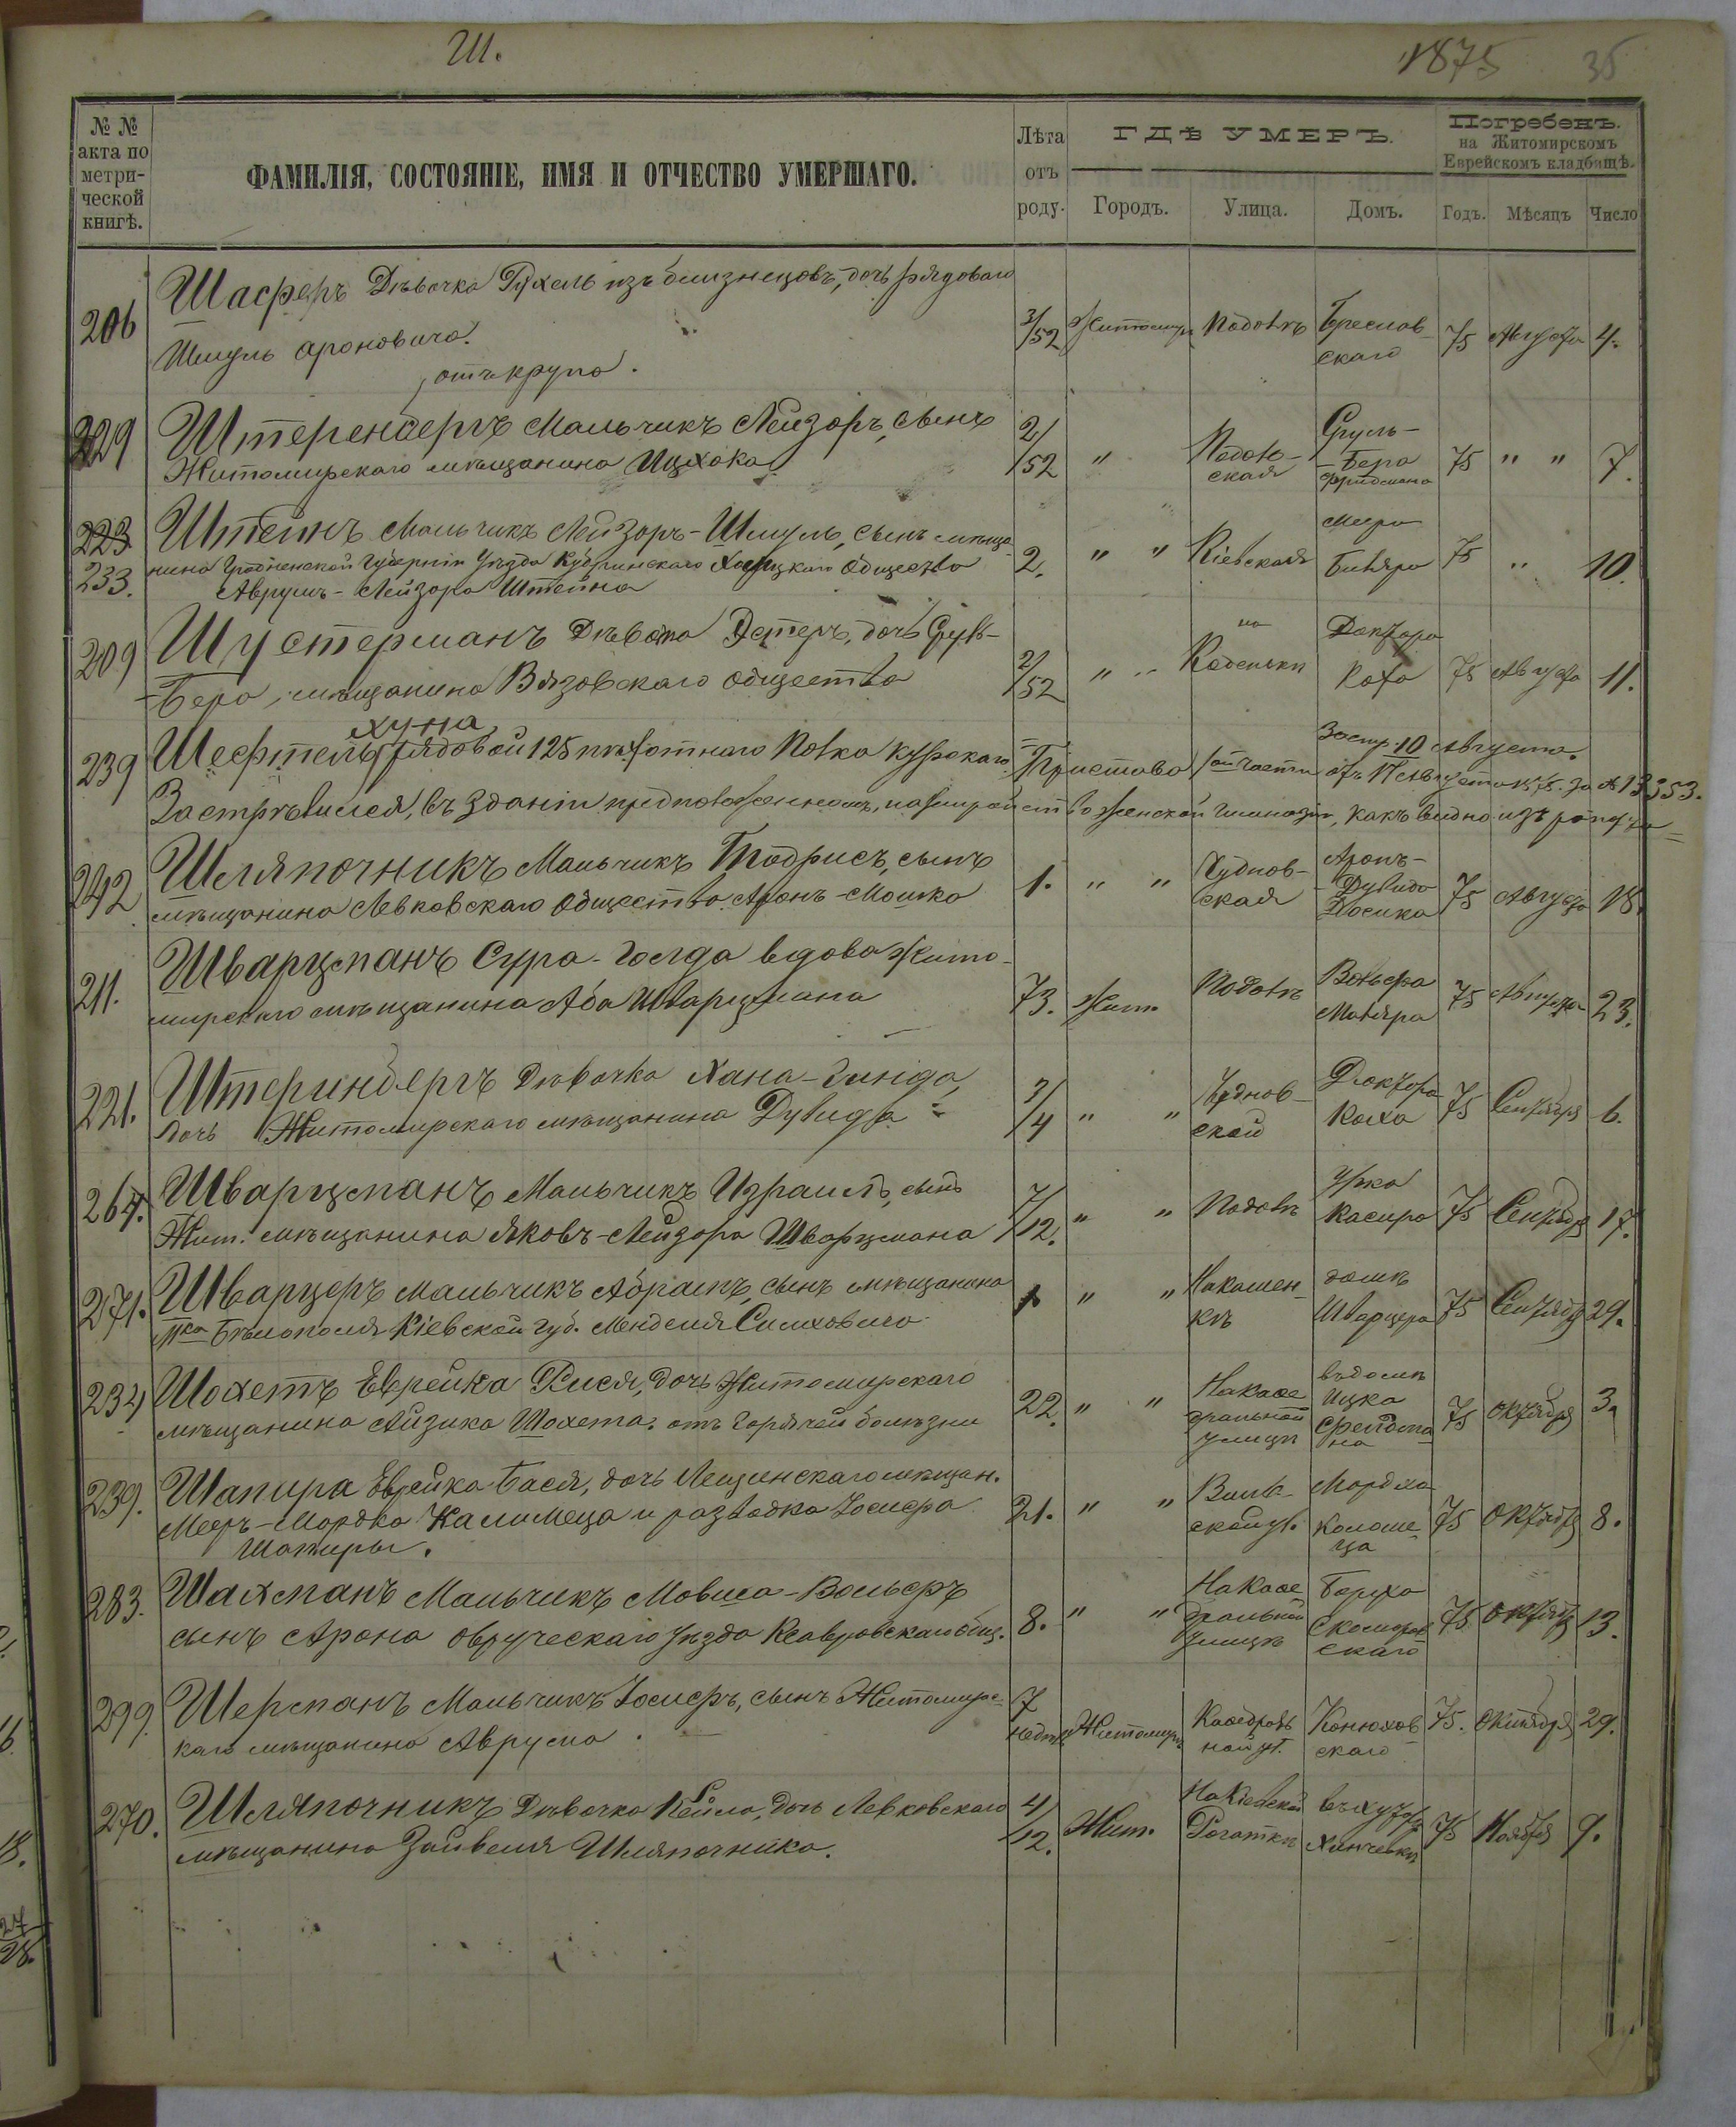 Ш.
1875
35
№ №
акта по
метри-
ческой
книгѣ.
ФАМИЛІЯ, СОСТОЯНІЕ, ИМЯ И ОТЧЕСТВО УМЕРШАГО.
Лѣта
отъ
роду.
ГДѢ УМЕРЪ.
Городъ.
Улица.
Домъ.
Погребенъ.
на Житомирскомъ
Еврейскомъ кладбищѣ.
Годъ.
Мѣсяцъ
Число
206
Шасферъ Дѣвочка Рухель изъ близнецовъ, дочь рядоваго
Шмуль Ароновича.
отъ крупа.
3/52 Житомиръ Подолъ Бреслав-
скаго
75 Августа 4.
229
Штеренбергъ Мальчикъ Лейзоръ, сынъ
Житомирскаго мѣщанина Ицхока
2/52 " Подоль-
ская
Сруль-
-Бера
Фридмана
75 " " 7.
223
233.
Штейнъ Мальчикъ Лейзоръ-Шмуль, сынъ мѣща-
нина Гродненской Губерніи Уѣзда Кобринскаго общества
Аврумъ-Лейзора Штейна
2. " " Кіевская Меера
Биляра
75 " 10.
209
Шустерманъ Дѣвочка Эстеръ, дочь Сруль-
-Бера, мѣщанина Вязовскаго общества
2/52 " " на
Каденьки
Доктора
Коха
75 Августа 11.
239
Хуна
Шефтель рядовой 125 пѣхотнаго Полка Курскаго
Застр. 10 Августа.
Пристава 1ой части отъ 11 Августа 1875. за № 13353.
Застрѣлился, въ зданіи предположенномъ, на Женской гимназіи, какъ видно изъ рапорта
242
Шляпочникъ Мальчикъ Тодрисъ, сынъ
мѣщанина Левковскаго Общества Аронъ-Мошка
1. " " Чуднов-
ская
Аронъ-
-Дувида
Посика
75 Августа 18.
211.
Шварцманъ Сура-Голда вдова Жито-
мирскаго мѣщанина Аба Шварцмана
73. Жит. Подолъ Вольфа
Маляра
75 Августа 23.
221.
Штеринбергъ Дѣвочка Хана-Гинда,
дочь Житомирскаго мѣщанина Дувида
3/4 " " Чуднов-
ской
Доктора
Коха
75 Сентября 6.
264.
Шварцманъ Мальчикъ Израиль, сынъ
Жит. мѣщанина Яковъ-Лейзора Шварцмана
7/12. " " Подолъ Урка
Касира
75 Сентября 17.
271.
Шварцеръ Мальчикъ Абрамъ, сынъ мѣщанина
Мка Бѣлополя Кіевской губ. Менделя Симховаго
1 " " На Камен-
кѣ
домъ
Шварцера
75 Сентября 29.
234
Шохетъ Еврейка Рися, дочь Житомирскаго
мѣщанина Айзика Шохета. отъ Горячей болѣзни
22. " " На Каѳе
дральной
улицѣ
въ домѣ
Ицка
Фейдма
на
75 Октября 3.
239.
Шапира Еврейка Бася, дочь Лещинскаго мѣщан.
Мееръ-Мордко Каломеца и разводка Іосифа
Шапиры.
21. " " Виль-
ской ул.
Мордха
Коломе
ца
75 Октября 8.
283.
Шахманъ Мальчикъ Мовша-Вольфъ
сынъ Арона Овруческаго Уѣзда Ксавровскаго общ.
8. " " На Каѳе
дральной
улицѣ
Боруха
Скоморов
скаго
75 Октября 13.
299.
Шерманъ Мальчикъ Іосифъ, сынъ Житомирс-
каго мѣщанина Аврума
7
недѣль
Житомиръ Каѳедраль
ной ул.
Конюхов
скаго
75. Октября 29.
270.
Шляпочникъ Дѣвочка Кейла, дочь Левковскаго
мѣщанина Зайвеля Шляпочника.
4/12. Жит. На Кіевской
Рогаткѣ
въ хуторѣ
Хинчевкѣ
75 Ноября 9.